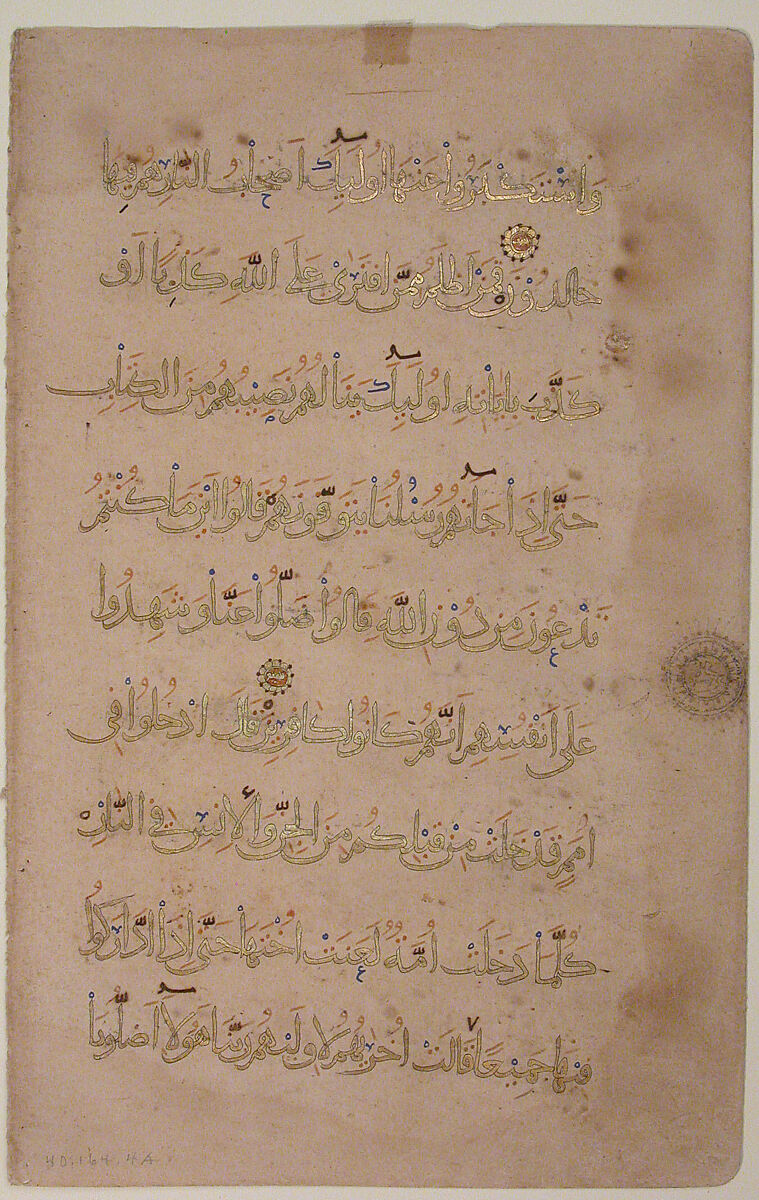 وَاسْتَكْبَرُواْ عَنْهَا اُولَٰئِكَ اَصْحَابُ النَّارِ هُمْ فِيهَا
خَالِدُونَ فَمَنْ اَظْلَمُ مِمَّنِ افْتَرَىٰ عَلَى اللَّهِ كَذِبًا اَوْ
كَذَّبَ بِاٰيَاتِهِ اُولَٰئِكَ يَنَالُهُمْ نَصِيبُهُمْ مِنَ الْكِتَابِ
حَتَّىٰ اِذَا جَاءَتْهُمْ رُسُلُنَا يَتَوَفَّوْنَهُمْ قَالُوا اَيْنَ مَا كُنْتُمْ
تَدْعُونَ مِنْ دُونِ اللَّهِ قَالُواْ ضَلُّواْ عَنَّا وَشَهِدُوا
عَلَىٰ اَنْفُسِهِمْ اَنَّهُمْ كَانُوا كَافِرِينَ قَالَ ادْخُلُواْ فِي
اُمَمٍ قَدْ خَلَتْ مِنْ قَبْلِكُمْ مِنَ الْجِنِّ وَالْاِنْسِ فِي النَّارِ
كُلَّمَا دَخَلَتْ اُمَّةٌ لَعَنَتْ اُخْتَهَا حَتَّىٰ اِذَا ادَّارَكُوا
فِيهَا جَمِيعًا قَالَتْ اُخْرٰيهُمْ لِاُولٰيهُمْ رَبَّنَا هَٰؤُلَاءِ اَضَلُّونَا
40.164.4A